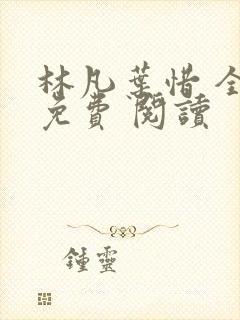 林凡葉惜全
免費 閱讀
鍾靈